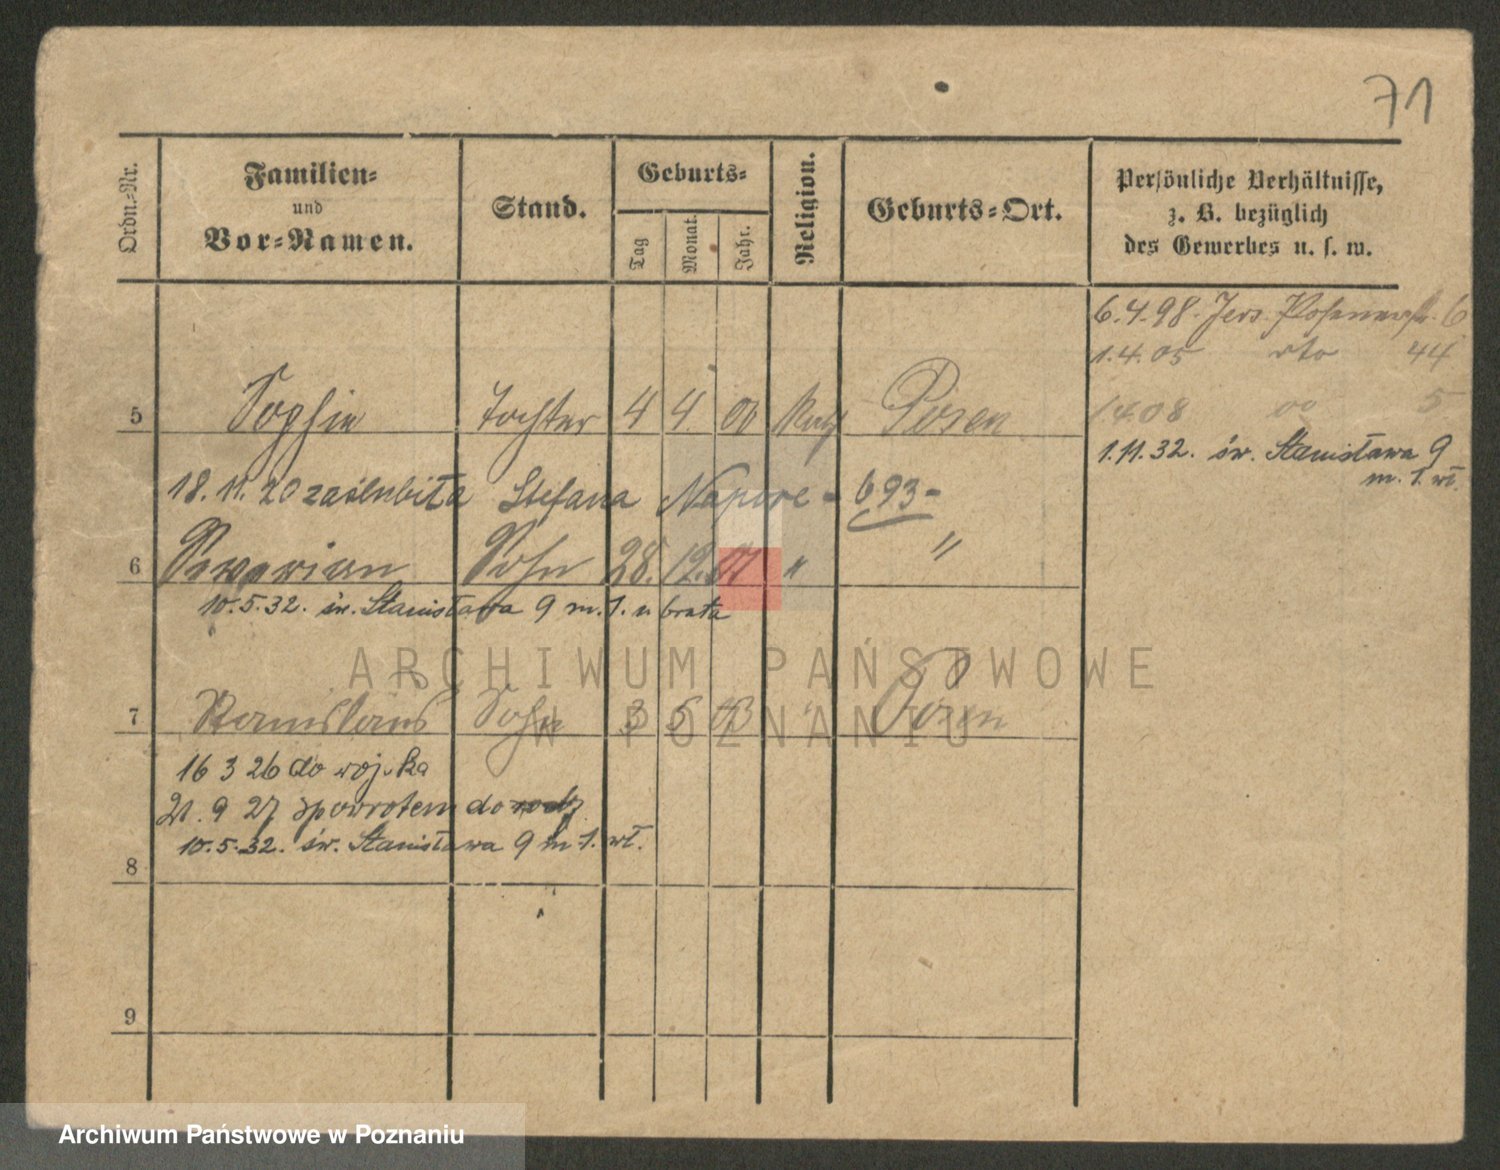 71
Ordn.-Nr.
Familien-
und
Vor-Namen.
Stand.
Geburts-
Tag
Monat.
Jahr.
Religion.
Geburts-Ort.
Persönliche Verhältnisse,
z. B. bezüglich
des Gewerbes u. s. w.
6.4.98. Jers. Posenerstr. 6
1.4.05 dto 44
5 Sophie Tochter 4 4. 00 Kath Posen
1.4.08 do 5
1.11.32. św. Stanisława 9
m. 1. wł.
18.11.20 zaślubiła Stefana - 693 -
6 Sewerian Sohn 28. 12. 01 " "
10.5.32. św. Stanisława 9 m. 1. u brata
ARCHIWUM PAŃSTWOWE
W POZNANIU
7 Stanislaus Sohn 3 5 03 " Posen
16 3 26 do wojska
21. 9 27 spowrotem do rodz.
10.5.32. św. Stanisława 9 m 1. wł.
8
9
Archiwum Państwowe w Poznaniu